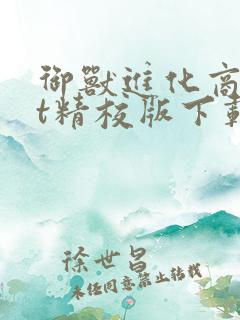 御獸進化商
t精校版下載
徐世昌
未经同意禁止转载